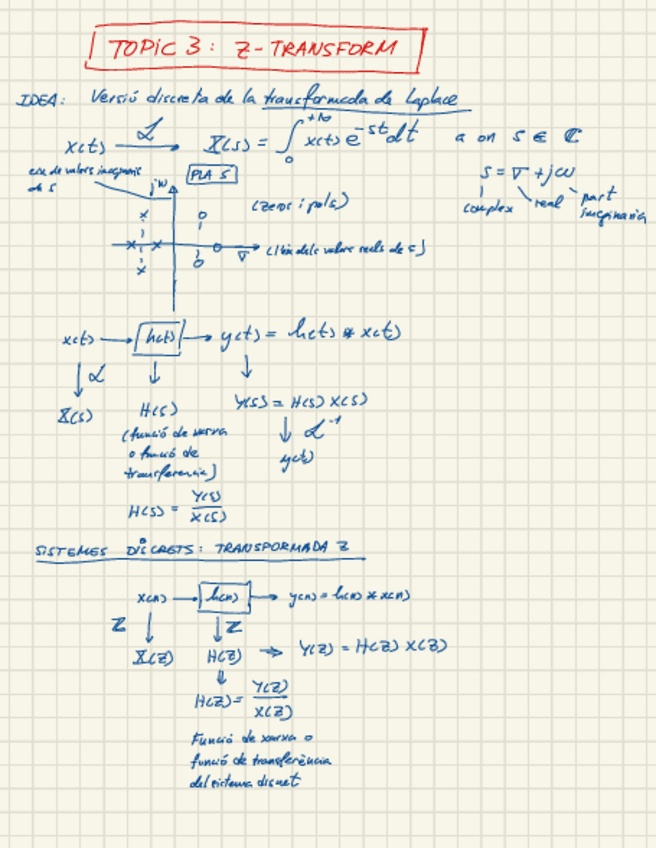 TOPIC 3: Z-TRANSFORM
IDEA: Versió discreta de la transformada de Laplace
x(t) ⟶ℒ X(s) = ∫₀^{+∞} x(t) e^{-st} dt a on s ∈ ℂ
eix de valors imaginaris
de s
jω
PLA S
(zeros i pols)
σ
s = σ + jω
complex real part
imaginaria
x(t) → h(t) → y(t) = h(t) * x(t)
↓ ℒ ↓ ↓
X(s) H(s) Y(s) = H(s) X(s)
(funció de xarxa
o funció de
transferencia)
↓ ℒ⁻¹
y(t)
H(s) = Y(s)/X(s)
SISTEMES DISCRETS: TRANSFORMADA Z
x(n) → h(n) → y(n) = h(n) * x(n)
Z ↓ ↓ Z
X(Z) H(Z) ⇒ Y(Z) = H(Z) X(Z)
↓
H(Z) = Y(Z)/X(Z)
Funció de xarxa o
funció de transferència
del sistema discret